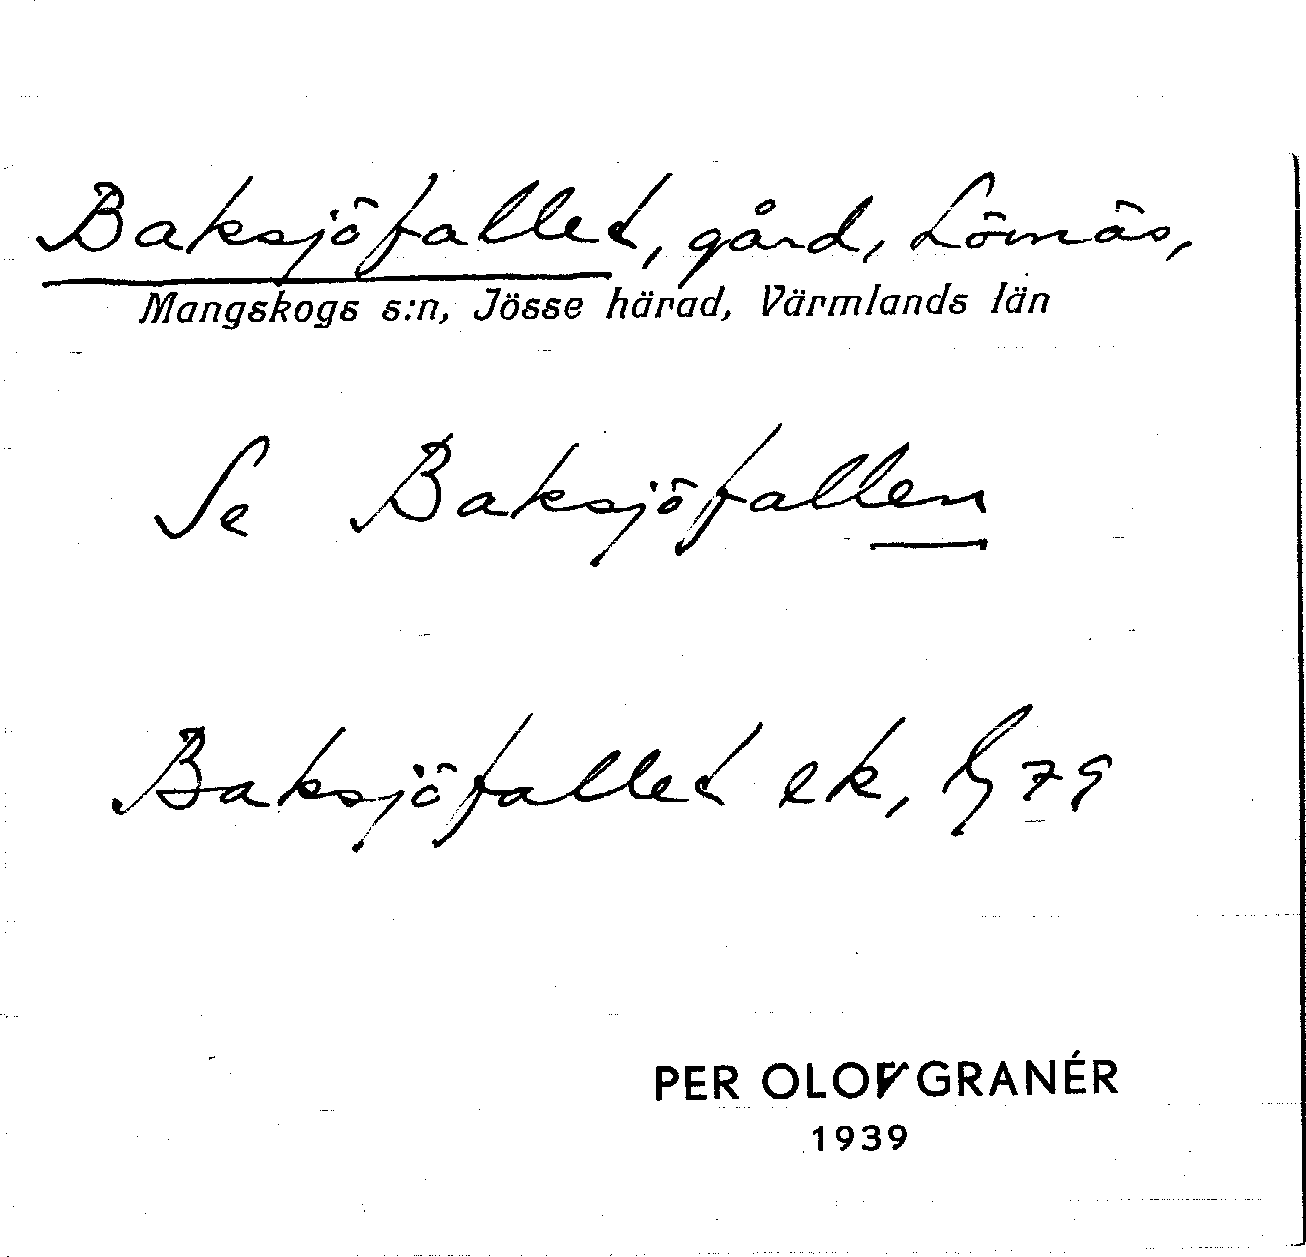 Baksjöfallet, gård, Lömäs,
Mangskogs s:n, Jösse härad, Värmlands län
Se Baksjöfallen
Baksjöfallet ek, 79
PER OLOV GRANÉR
1939